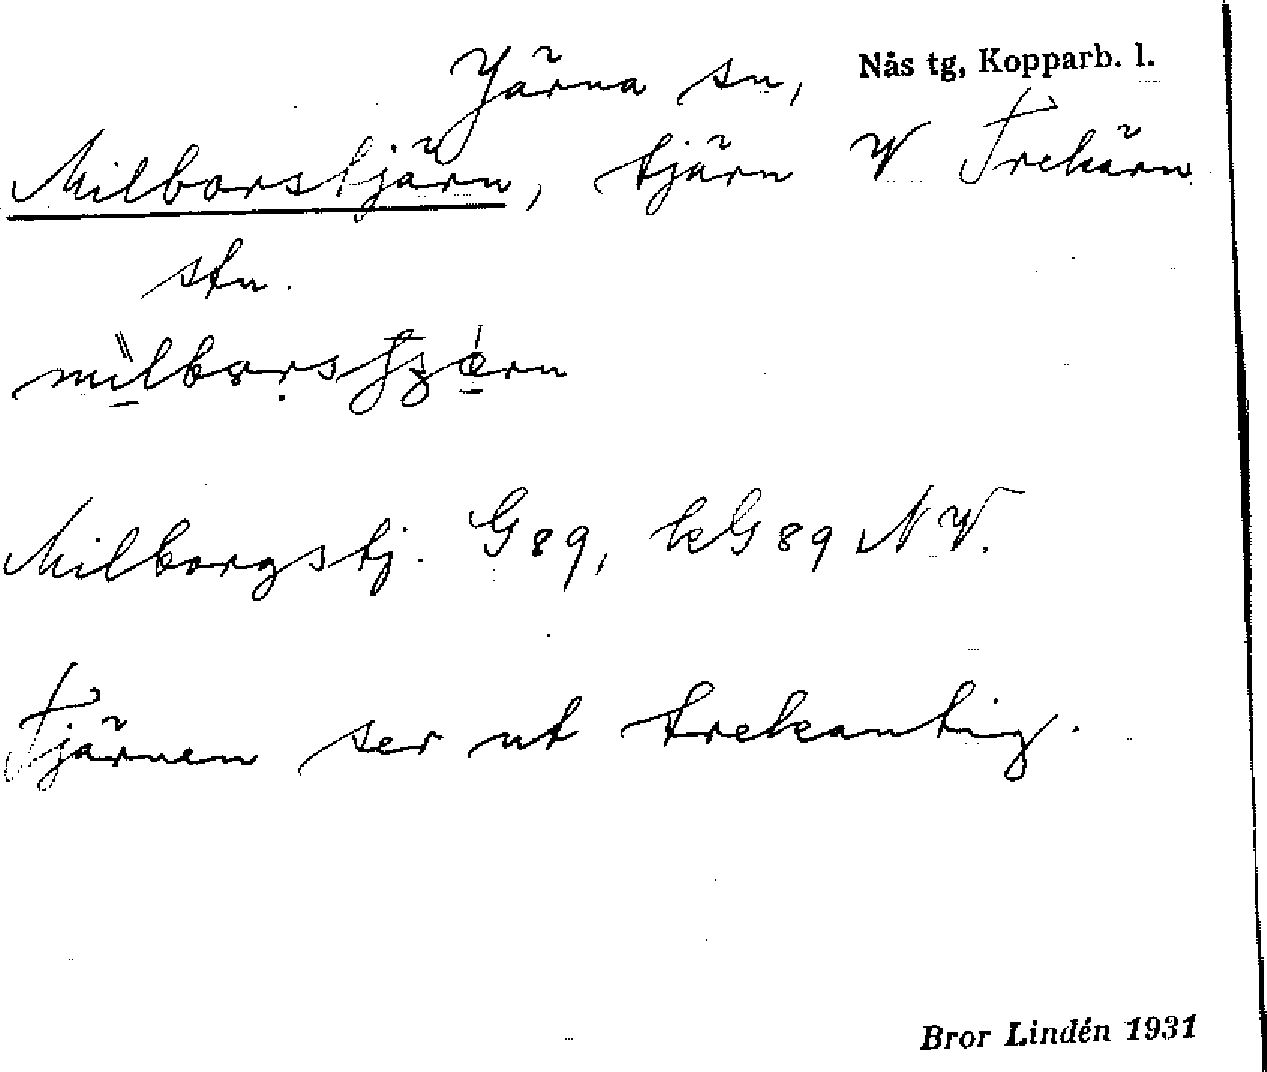 Järna sn, Nås tg, Kopparb. l.
Milborstjärn, tjärn V Trekärn
stn.
Milborgstj. G89, kG89 NV.
Tjärnen ser ut trekantig.
Bror Lindén 1931